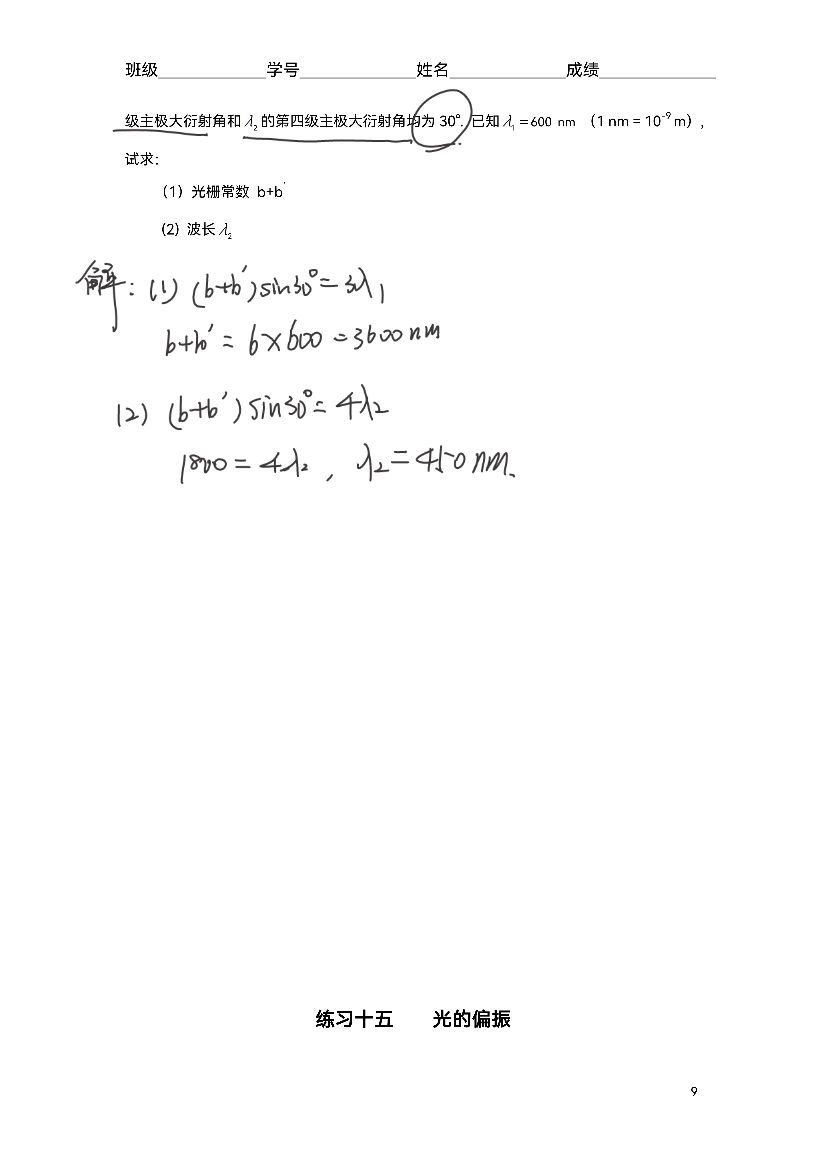 班级____________学号____________姓名____________成绩____________
级主极大衍射角和 λ₂ 的第四级主极大衍射角均为 30°. 已知 λ₁ =600 nm （1 nm = 10⁻⁹ m），
试求：
（1）光栅常数 b+b'
(2) 波长 λ₂
解：(1) (b+b')sin30°=3λ₁
b+b' = 6×600 =3600nm
(2) (b+b')sin30°=4λ₂
1800=4λ₂ ，λ₂=450nm.
练习十五 光的偏振
9